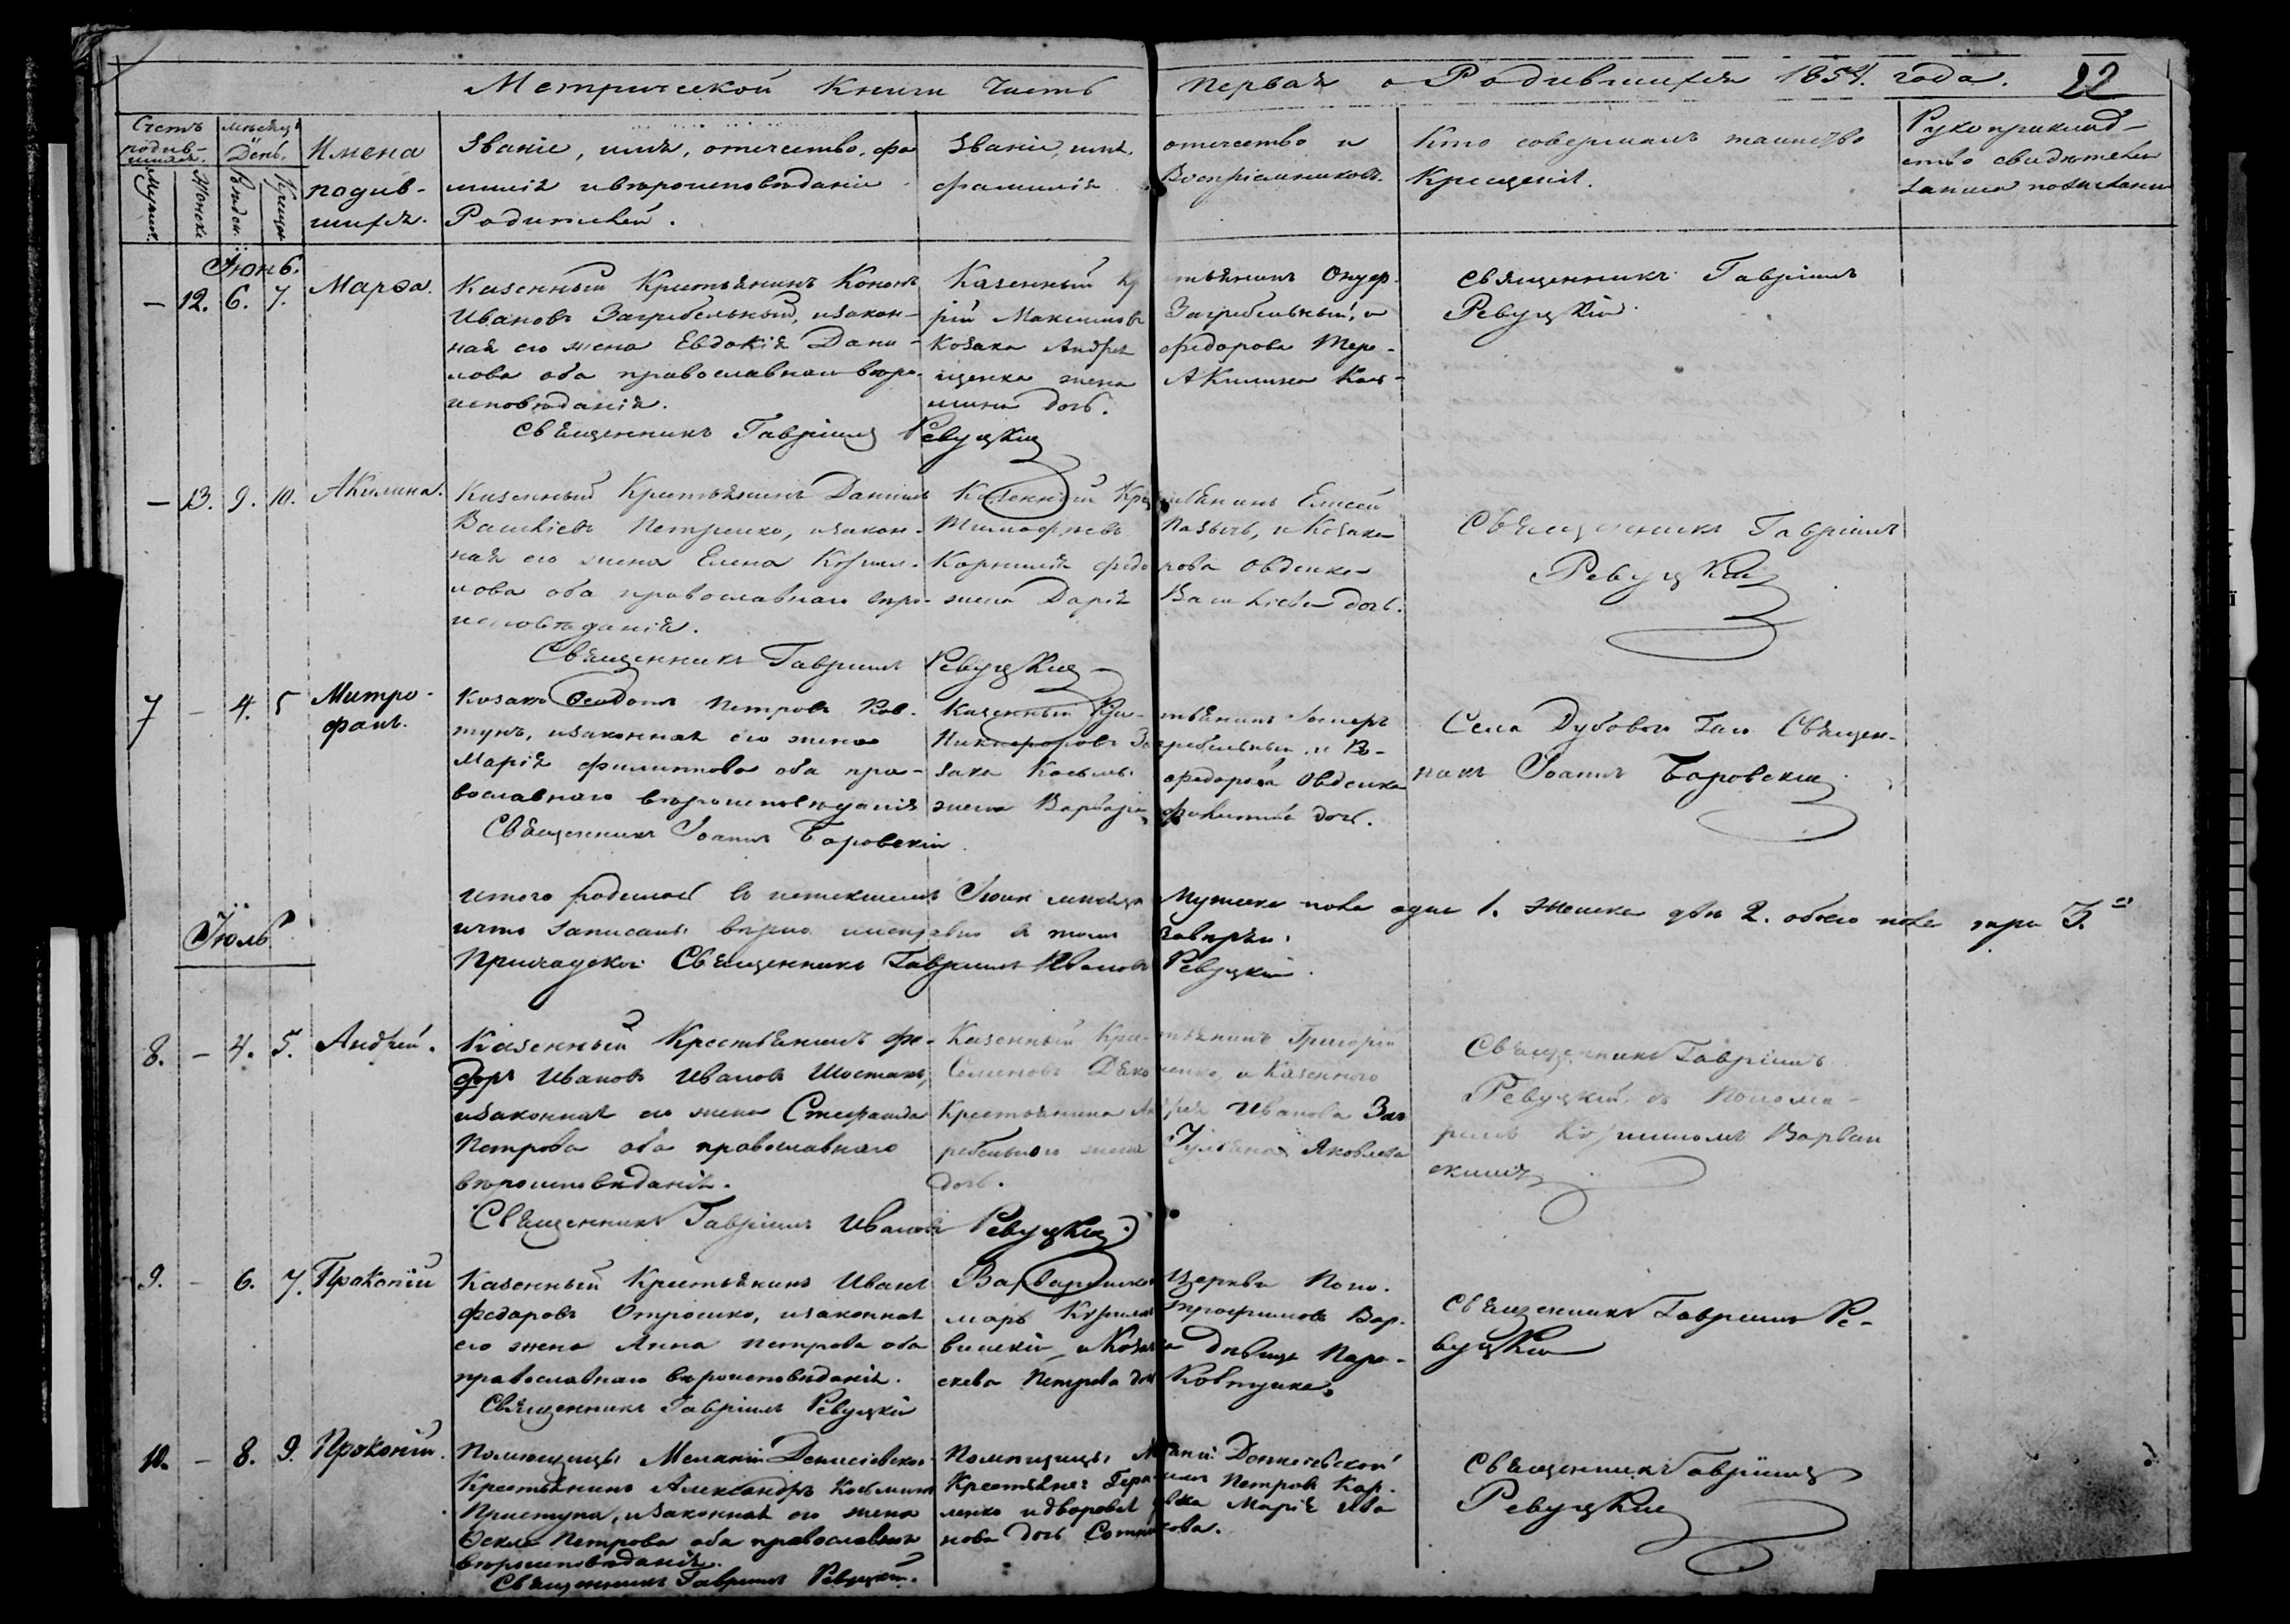 Метрической Книги Часть первая о Родившихся 1854. года. 22
Счетъ родив-шихся.
Мужск.
Женск.
мѣсяцъ День.
Рожден.
Крещен.
Имена родив-шихся.
Званіе, имя, отечество, фа
милія и вѣроисповѣданіе
Родителей.
Званіе, имя, отечество и
фамилія Воспріемниковъ.
Кто совершалъ таинство
Крещенія.
Рукоприклад-
ство свидѣтелей
записи по желанію
Іюнь.
— 12. 6. 7. Марѳа.
Казенный Крестьянинъ Кононъ
Ивановъ Загребельный, и закон-
ная его жена Евдокія Дани-
лова оба православнаго вѣро-
исповѣданія.
Священникъ Гавріилъ Ревуцкій
Казенный Крестьянинъ Онуф-
рій Максимовъ Загребельный, и
Козака Андрея Федорова Тере-
щенка жена Акилина Козь-
мина дочь.
Священникъ Гавріилъ
Ревуцкій.
— 13. 9. 10. Акилина.
Казенный Крестьянинъ Даніилъ
Василіевъ Петренко, и закон-
ная его жена Елена Кирил-
лова оба православнаго вѣро-
исповѣданія.
Священникъ Гавріилъ Ревуцкій
Казенный Крестьянинъ Елисей
Тимофѣевъ Козака
Корнилія Федорова Овденка
жена Дарія Василіева дочь.
Священникъ Гавріилъ
Ревуцкій
7 — 4. 5 Митро-
фанъ.
Козакъ Ѳеодотъ Петровъ Ков-
тунъ, и законная его жена
Марія Филиппова оба пра-
вославнаго вѣроисповѣданія
Священникъ Іоаннъ Боровскій.
Казенный Крестьянинъ
Никифоровъ Загребельный, и Ко-
зака Косьмы Федорова Овденка
жена Варвара дочь.
Села Дубоваго Гаю Священ-
никъ Іоаннъ Боровскій
Итого родилось въ истекшемъ Іюнѣ мѣсяцѣ Мужска пола одинъ 1. Женска двѣ 2. обоего пола три 3.
что записаны вѣрно въ томъ
Приходскій Священникъ Гавріилъ Ивановъ Ревуцкій.
Іюль
8. — 4. 5. Андрей.
Казенный Крестьянинъ Фе-
доръ Ивановъ Ивановъ Шостакъ,
и законная его жена Стефанида
Петрова оба православнаго
вѣроисповѣданія.
Священникъ Гавріилъ Ивановъ Ревуцкій
Казенный Крестьянинъ Григорій
Семеновъ и Казеннаго
Крестьянина Андрея Иванова Заг
ребельнаго жена Іуліанія Яковлева
дочь.
Священникъ Гавріилъ
Ревуцкій съ Понома-
ремъ Кирилломъ Варвин
скимъ
9. — 6. 7. Прокопій
Казенный Крестьянинъ Иванъ
Федоровъ Отрошко, и законная
его жена Анна Петрова оба
православнаго вѣроисповѣданія.
Священникъ Гавріилъ Ревуцкій
Варваринской Церкви Поно-
марь Кириллъ Трофимовъ Вар-
винскій, и Козачка Дѣвица Пара-
скева Петрова дочь Ковтунка.
Священникъ Гавріилъ Ре-
вуцкій
10. — 8. 9. Прокопій.
Помѣщицы Меланіи Денисіевской
Крестьянинъ Александръ Косьминъ
Приступа, и законная его жена
Ѳекла Петрова оба православнаго
вѣроисповѣданія.
Священникъ Гавріилъ Ревуцкій.
Помѣщицы Меланіи Денисіевской
Крестьяне: Герасимъ Петровъ Кар-
ленко и дворовая дѣвка Марія Ива
нова дочь Сотникова.
Священникъ Гавріилъ
Ревуцкій